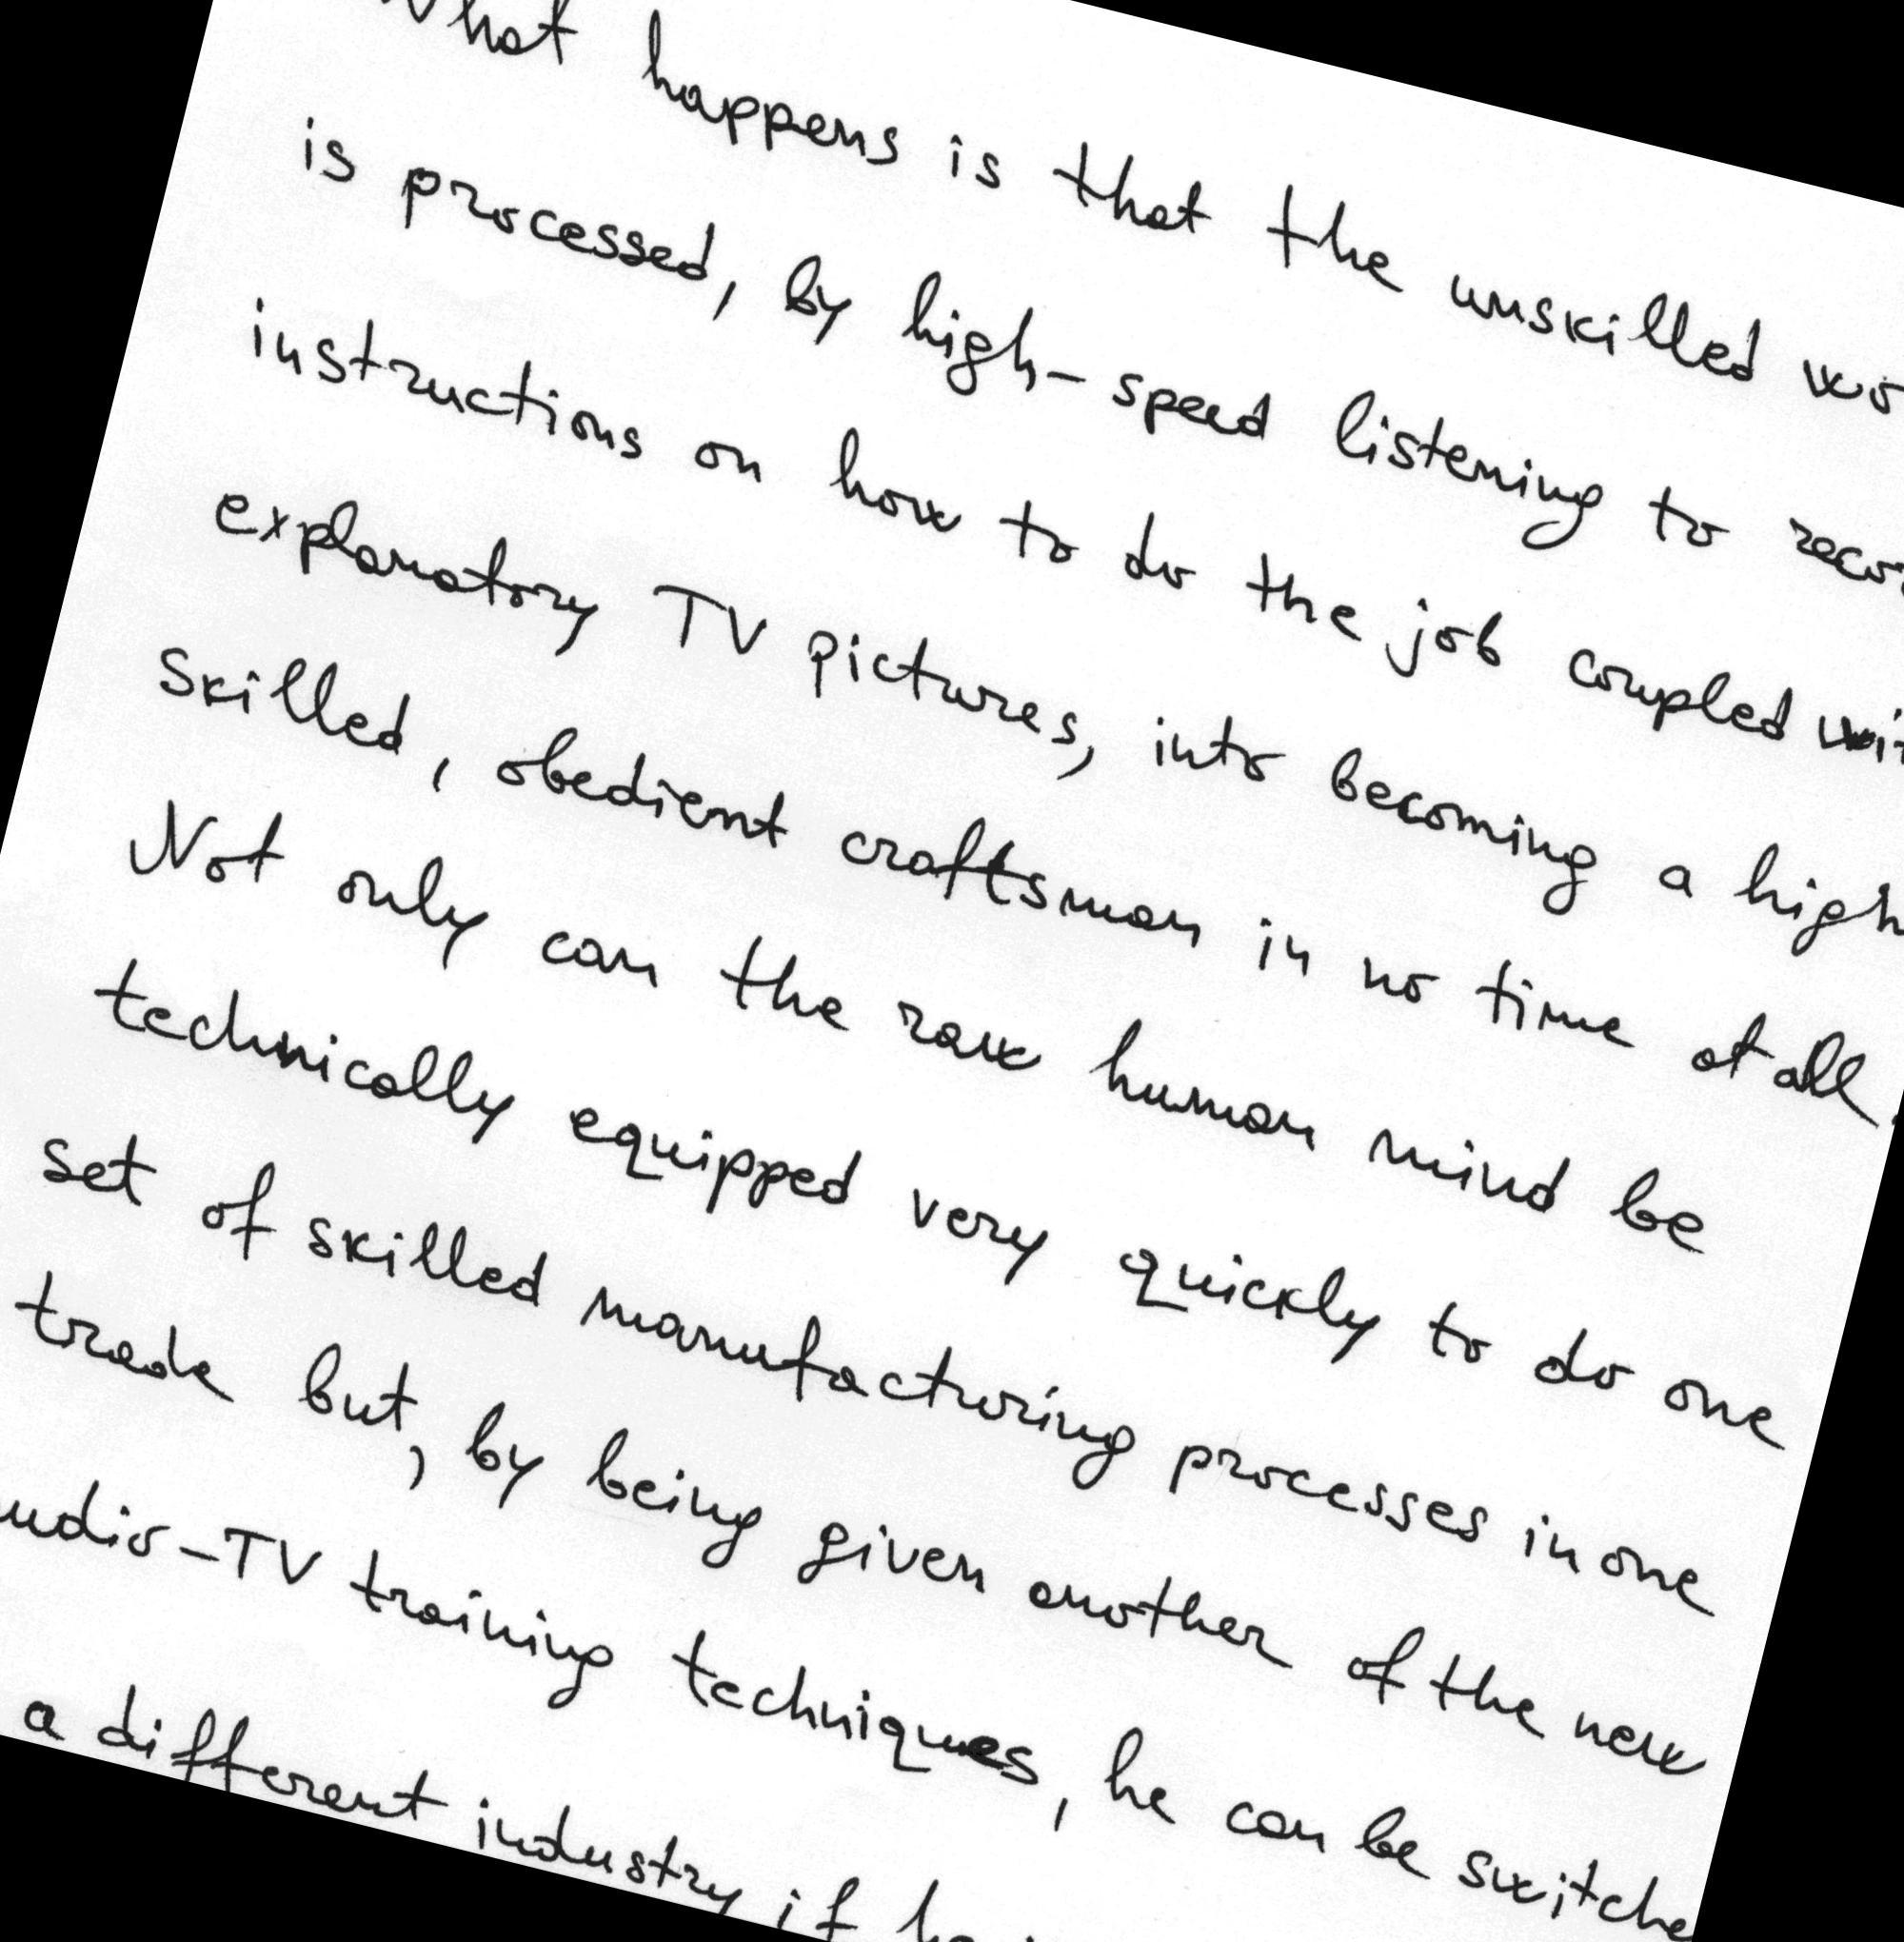 What happens is that the unskilled
is processed, by high-speed listening to
instructions on how to do the job coupled
explanatory TV pictures, into becoming a
skilled, obedient craftsman in no time at all.
Not only can the raw human mind be
technically equipped very quickly to do one
set of skilled manufacturing processes in one
trade but, by being given another of the new
-TV training techniques, he can be
a different industry if